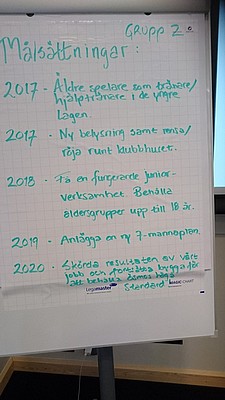 GRUPP 2.
Målsättningar:
2017 - Äldre spelare som tränare/
hjälptränare i de yngre
lagen.
2017 - Ny belysning samt rensa/
röja runt klubbhuset.
2018 - Få en fungerande junior-
verksamhet. Behålla
åldersgrupper upp till 18 år.
2019 - Anlägga en ny 7-mannaplan.
2020 - Skörda resultaten av vårt
jobb och fortsätta bygga för
att behålla
standard
Legamaster
MAGIC-CHART